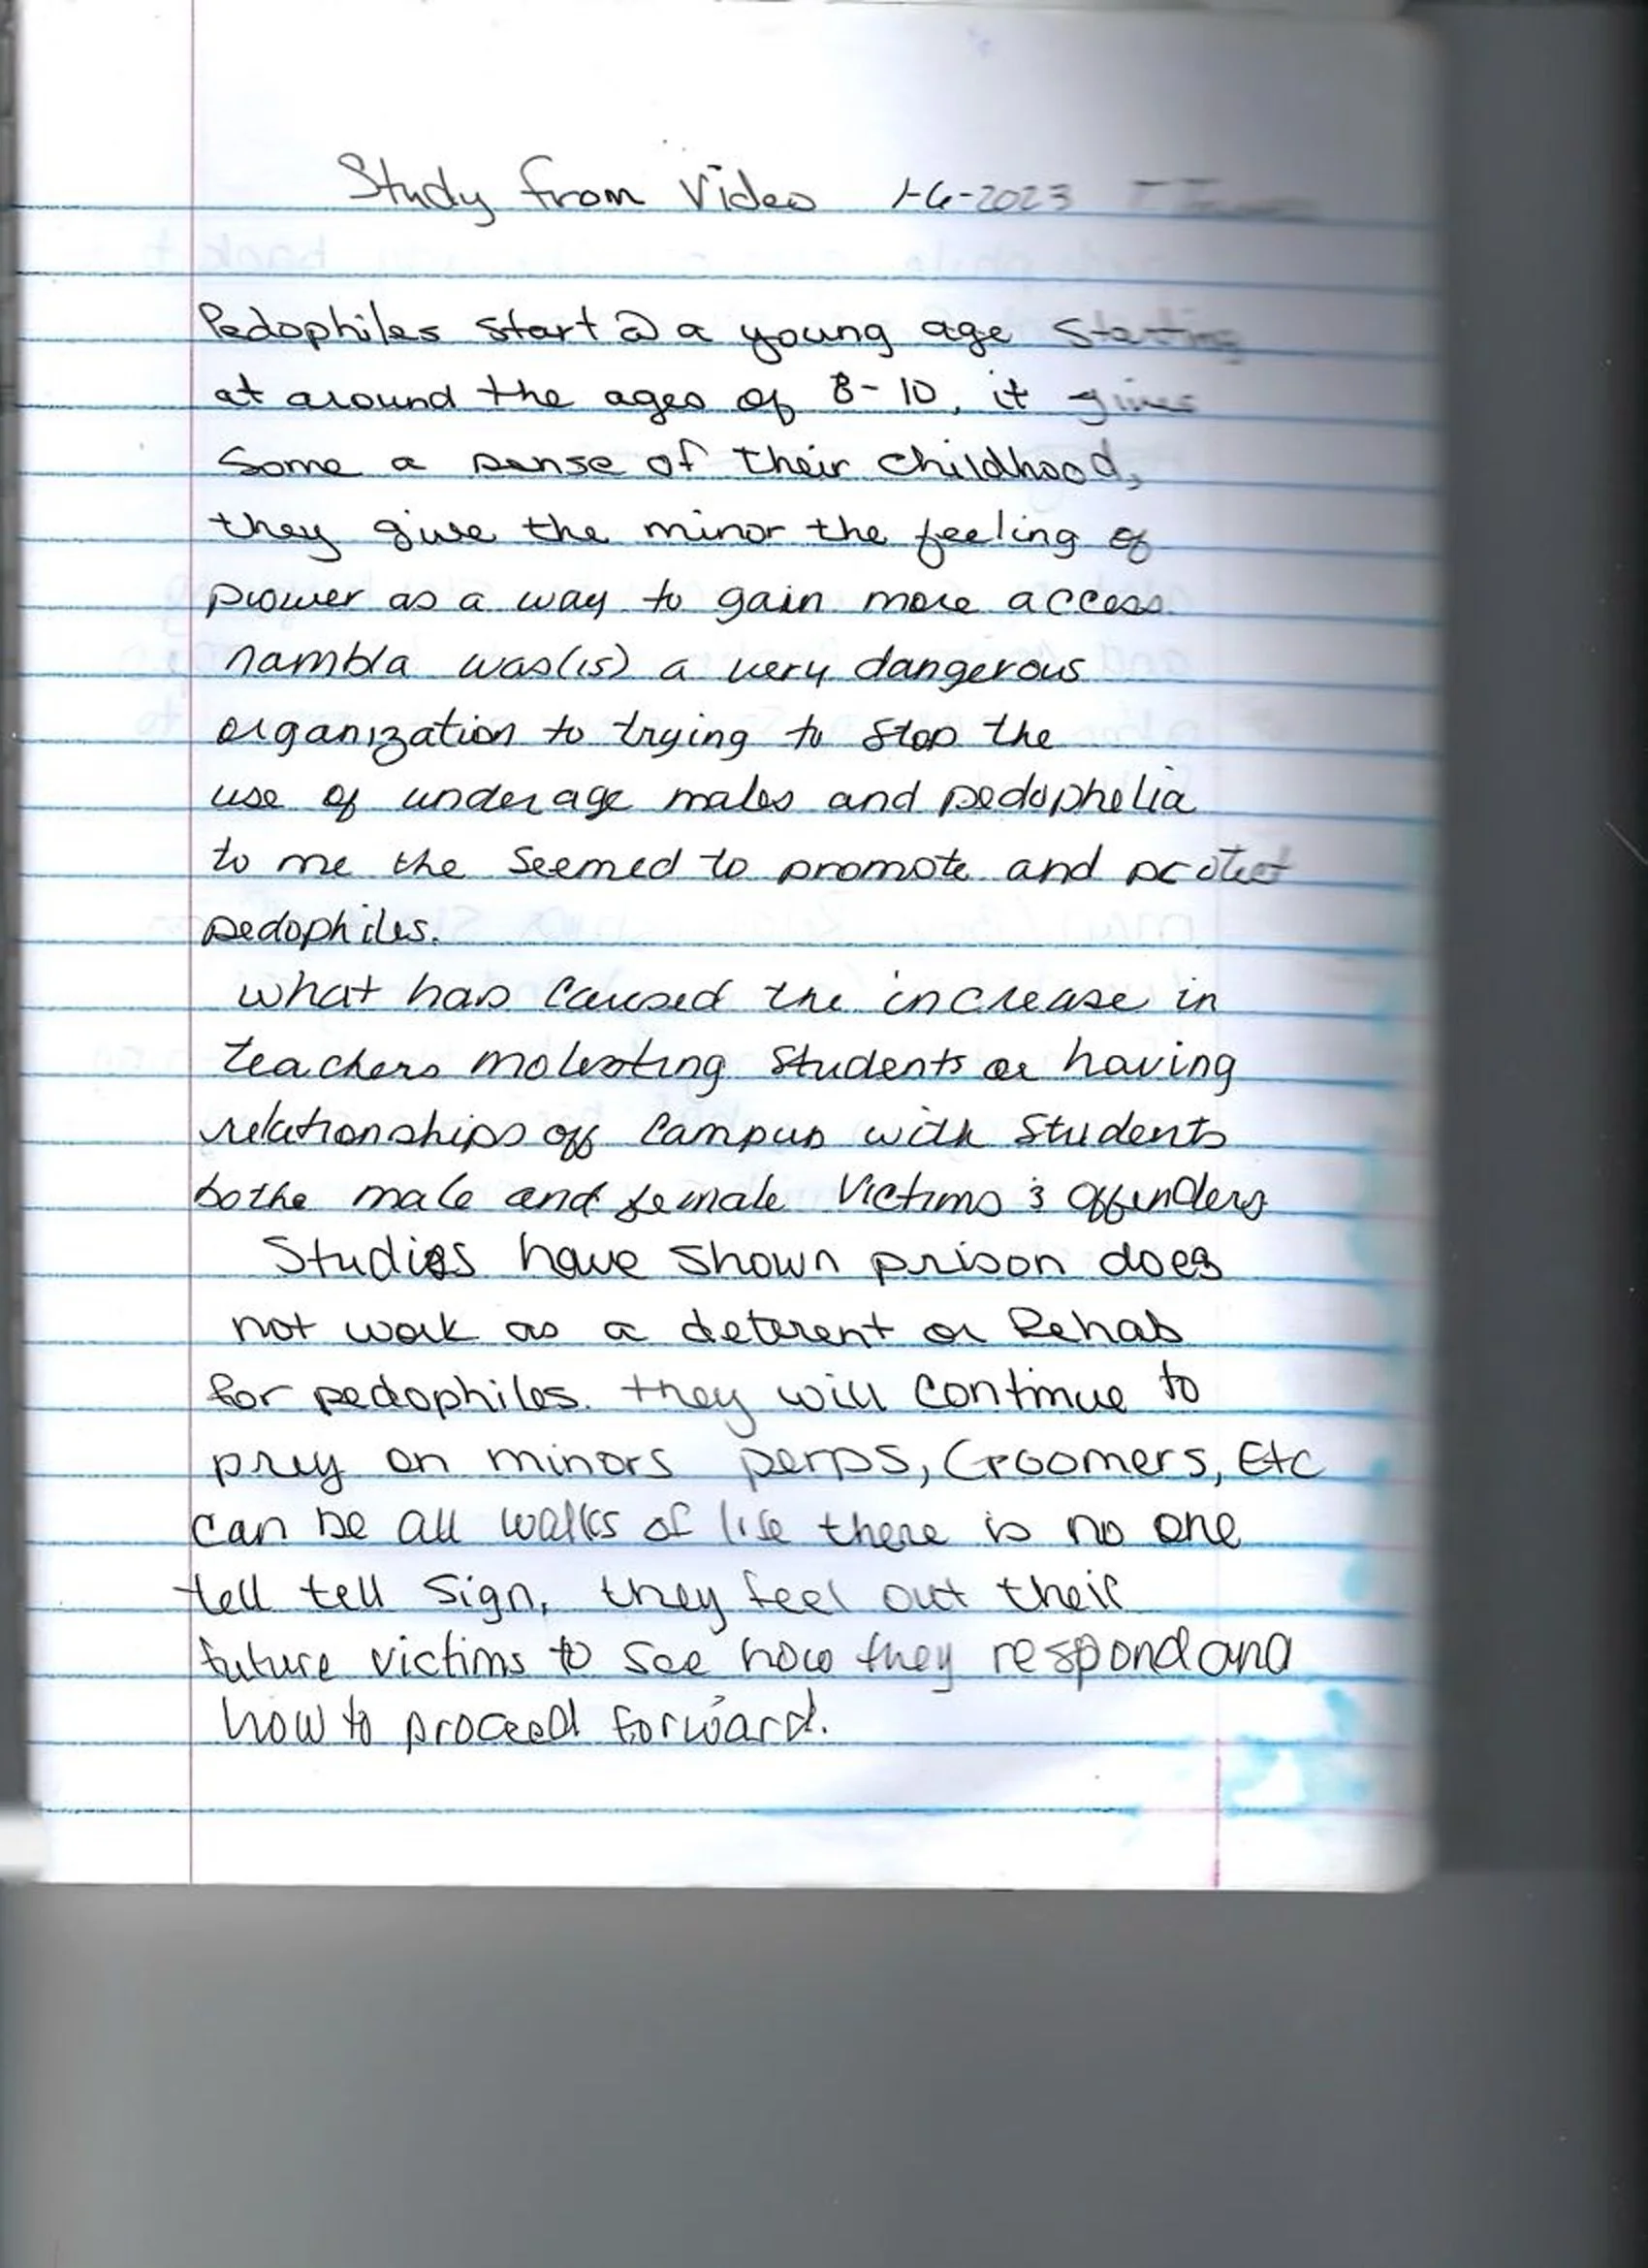 Study from Video 1-6-2023
Pedophiles start @ a young age Starting
at around the ages of 8-10, it gives
Some a sense of their childhood,
they give the minor the feeling of
power as a way to gain more access.
nambla was(is) a very dangerous
organization to trying to stop the
use of underage males and pedophelia
to me the Seemed to promote and protect
pedophiles.
what has caused the increase in
teachers molesting Students or having
relationships off Campus with Students
bothe male and female Victims & offenders
Studies have shown prison does
not work as a deterent or Rehab
for pedophiles. they will continue to
prey on minors perps, Groomers, Etc
can be all walks of life there is no one
tell tell Sign, they feel out their
future victims to see how they respond and
how to proceed forward.